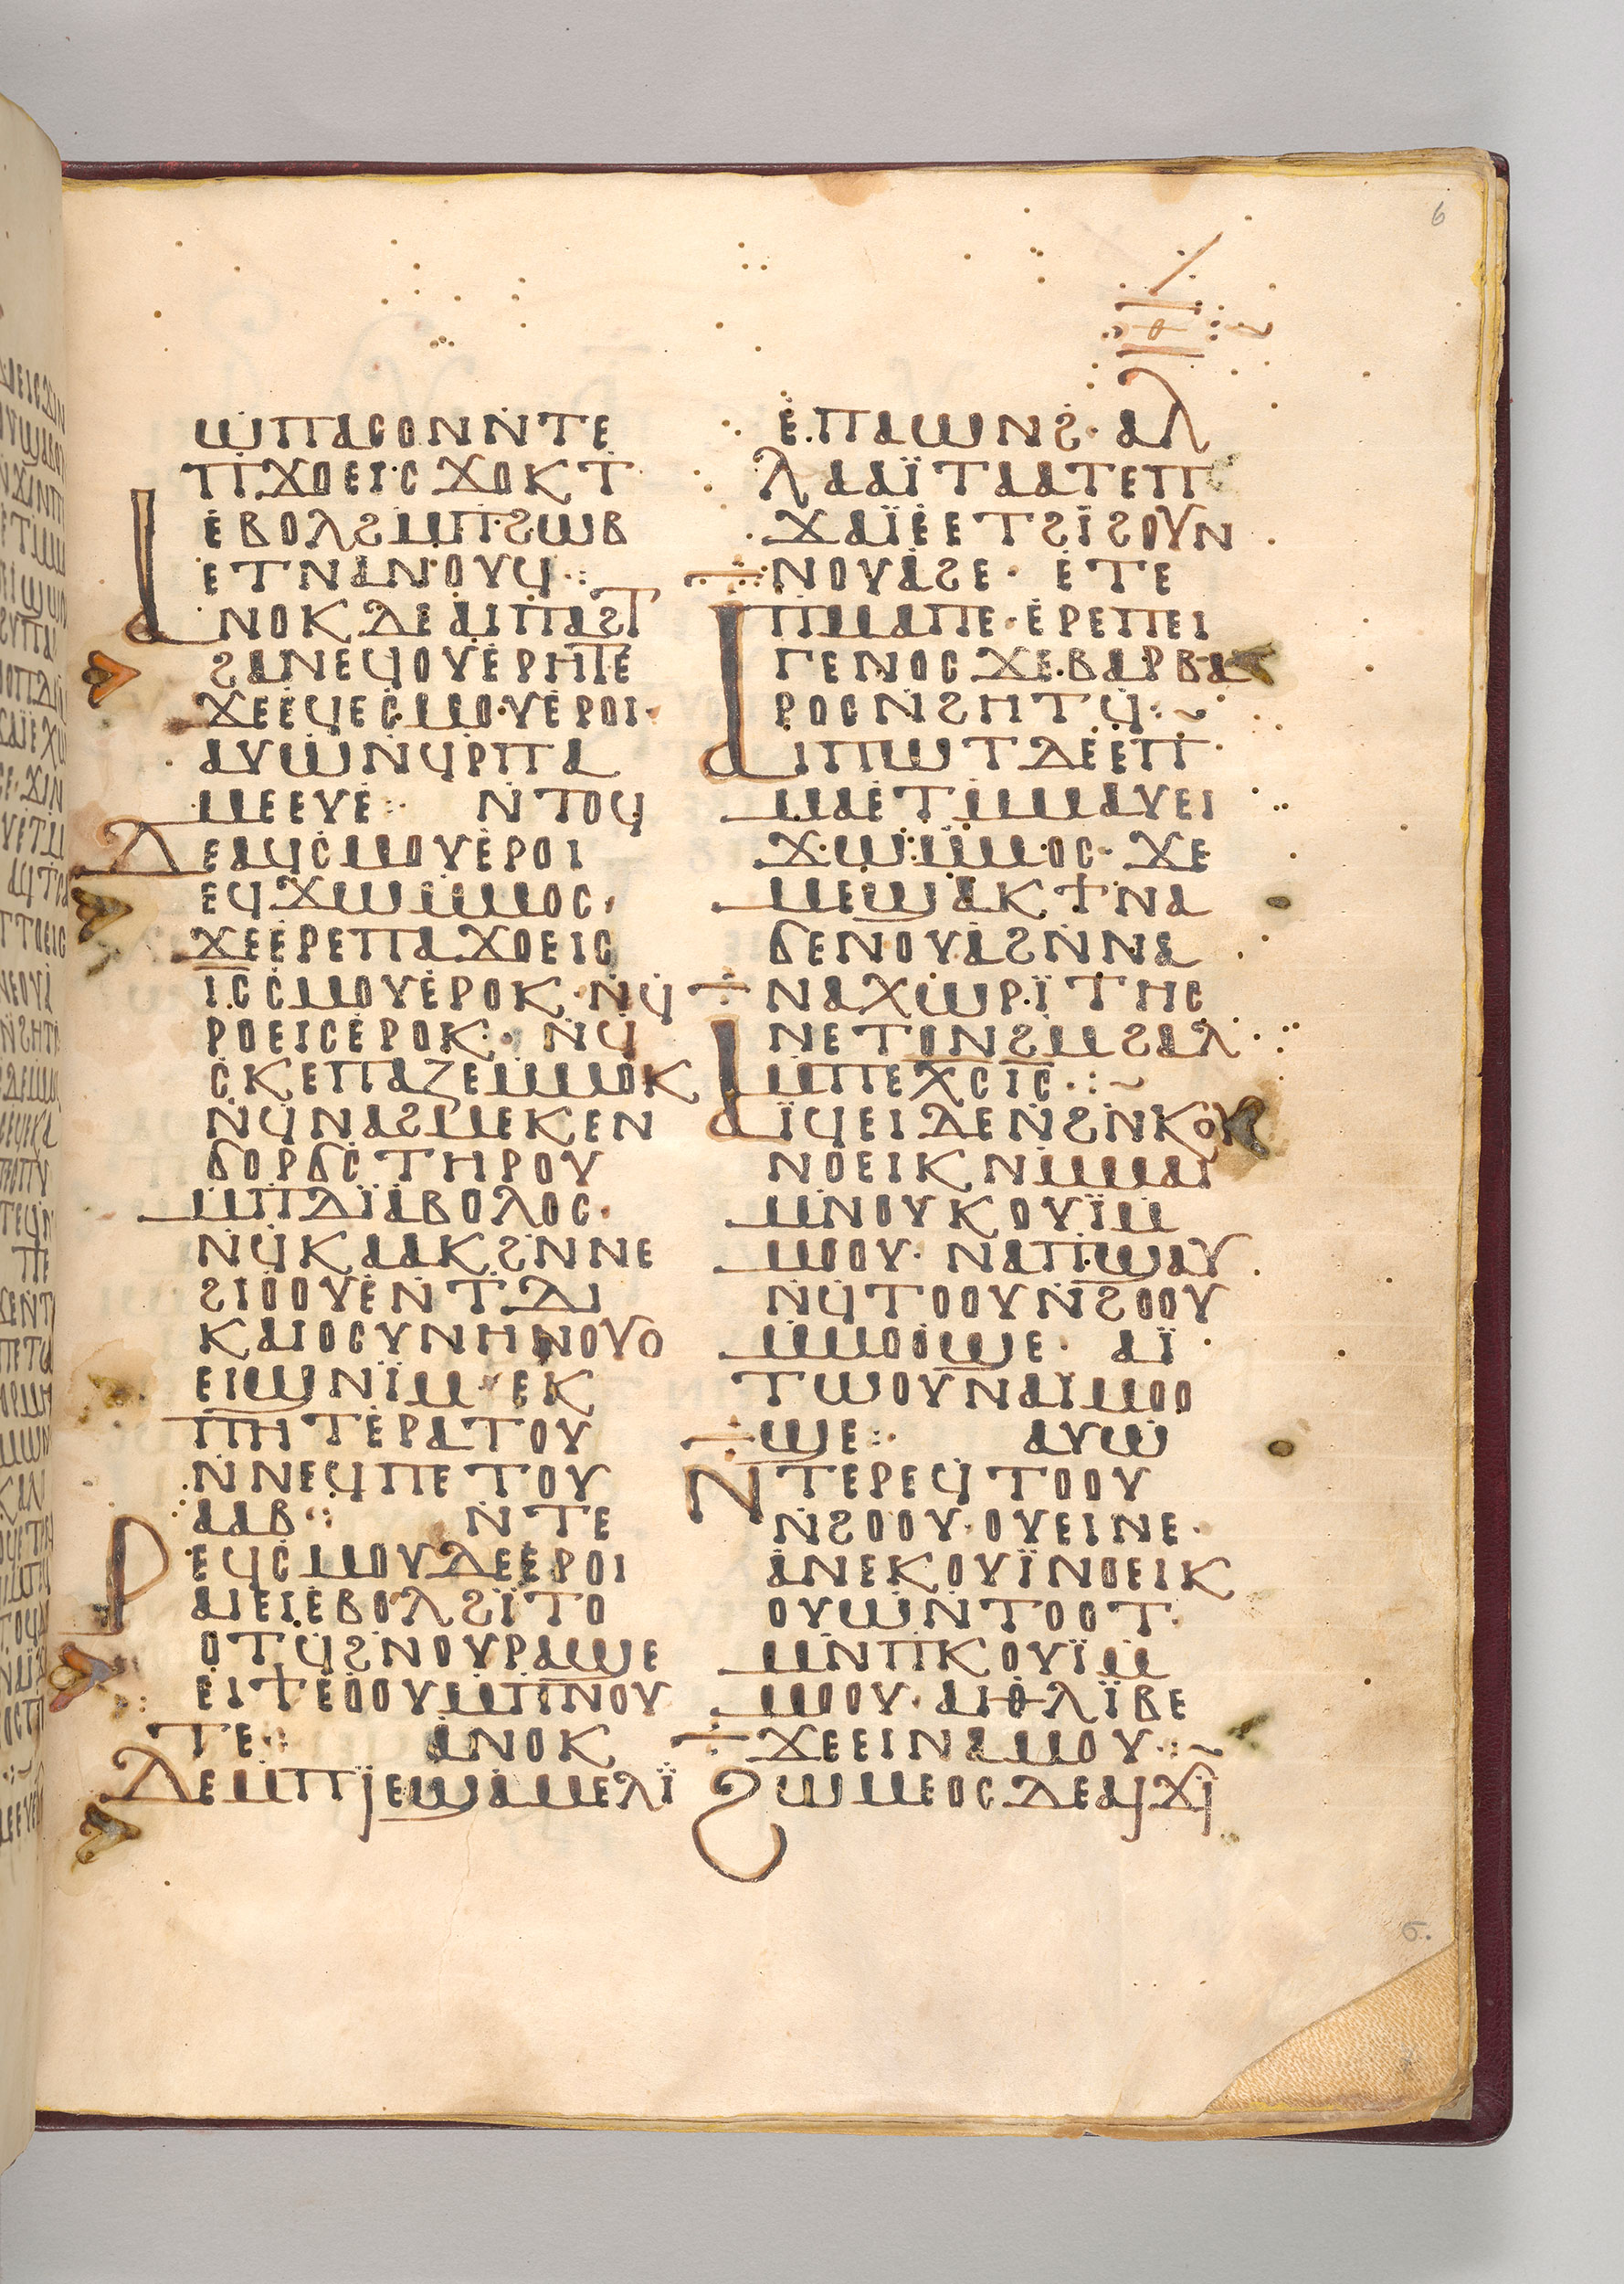 6
ⲑ
ⲱⲡⲁⲥⲟⲛⲛⲧⲉ
ⲡϫⲟⲉⲓⲥϫⲟⲕⲧ
ⲉⲃⲟⲗϩⲙⲡϩⲱⲃ
ⲉⲧⲛⲁⲛⲟⲩϥ:
ⲁⲛⲟⲕⲇⲉⲁⲓⲡⲁϩⲧ
ϩⲁⲛⲉϥⲟⲩⲉⲣⲏⲧⲉ
ϫⲉⲉϥⲉⲥⲙⲟⲩⲉⲣⲟⲓ·
ⲁⲩⲱⲛϥⲣⲡⲁ
ⲙⲉⲉⲩⲉ: ⲛⲧⲟϥ
ⲇⲉⲁϥⲥⲙⲟⲩⲉⲣⲟⲓ
ⲉϥϫⲱⲙⲙⲟⲥ·
ϫⲉⲉⲣⲉⲡⲁϫⲟⲉⲓⲥ
ⲓⲥⲥⲙⲟⲩⲉⲣⲟⲕ·ⲛϥ
ⲣⲟⲉⲓⲥⲉⲣⲟⲕ· ⲛϥ
ⲥⲕⲉⲡⲁⲍⲉⲙⲙⲟⲕ
ⲛϥⲛⲁϩⲙⲉⲕⲉⲛ
ϭⲟⲣϭⲥⲧⲏⲣⲟⲩ
ⲙⲡⲇⲓⲁⲃⲟⲗⲟⲥ·
ⲛϥⲕⲁⲁⲕϩⲛⲛⲉ
ϩⲓⲟⲟⲩⲉⲛⲧⲇⲓ
ⲕⲁⲓⲟⲥⲩⲛⲏⲛⲟⲩⲟ
ⲉⲓϣⲛⲓⲙ·ⲉⲕ
ⲡⲏⲧⲉⲣⲁⲧⲟⲩ
ⲛⲛⲉϥⲡⲉⲧⲟⲩ
ⲁⲁⲃ: ⲛⲧⲉ
ⲣⲉϥⲥⲙⲟⲩⲇⲉⲉⲣⲟⲓ
ⲁⲓⲉⲓⲉⲃⲟⲗϩⲓⲧⲟ
ⲟⲧϥϩⲛⲟⲩⲣⲁϣⲉ
ⲉⲓϯⲉⲟⲟⲩⲙⲡⲛⲟⲩ
ⲧⲉ: ⲁⲛⲟⲕ
ⲇⲉⲙⲡⲓⲉϣⲁⲙⲉⲗⲓ
ⲉ·ⲡⲁⲱⲛϩ·ⲁⲗ
ⲗⲁⲁⲓⲧⲁⲁⲧⲉⲡ
ϫⲁⲓⲉⲉⲧϩⲓϩⲟⲩⲛ
ⲛⲟⲩⲁϩⲉ· ⲉⲧⲉ
ⲡⲙⲁⲡⲉ·ⲉⲣⲉⲡⲉⲓ
ⲅⲉⲛⲟⲥϫⲉⲃⲁⲣⲃⲁ
ⲣⲟⲥⲛϩⲏⲧϥ:~
ⲁⲓⲡⲱⲧⲇⲉⲉⲡ
ⲙⲁⲉⲧⲙⲙⲁⲩⲉⲓ
ϫⲱⲙⲙⲟⲥ·ϫⲉ
ⲙⲉϣⲁⲕϯⲛⲁ
ϭⲉⲛⲟⲩⲁϩⲛⲛⲁ
ⲛⲁⲭⲱⲣⲓⲧⲏⲥ
ⲛⲉⲧⲟⲛϩⲙϩⲁⲗ
ⲙⲡⲉⲭⲥⲓⲥ·:~
ⲁⲓϥⲉⲓⲇⲉⲛϩⲛⲕⲟⲩ
ⲛⲟⲉⲓⲕⲛⲙⲙⲁⲓ
ⲙⲛⲟⲩⲕⲟⲩⲓⲙ
ⲙⲟⲟⲩ· ⲛⲁⲡϣⲁⲩ
ⲛϥⲧⲟⲟⲩⲛϩⲟⲟⲩ
ⲙⲙⲟⲟϣⲉ· ⲁⲓ
ⲧⲱⲟⲩⲛⲁⲓⲙⲟⲟ
ϣⲉ: ⲁⲩⲱ
ⲛⲧⲉⲣⲉϥⲧⲟⲟⲩ
ⲛϩⲟⲟⲩ·ⲟⲩⲉⲓⲛⲉ·
ⲁⲛⲉⲕⲟⲩⲓⲛⲟⲉⲓⲕ
ⲟⲩⲱⲛⲧⲟⲟⲧ·
ⲙⲛⲡⲕⲟⲩⲓⲙ
ⲙⲟⲟⲩ·ⲁⲓⲑⲗⲓⲃⲉ
ϫⲉⲉⲓⲛⲁⲙⲟⲩ·:~
ϩⲱⲙⲉⲟⲥⲇⲉⲁⲓϫⲓ
6.